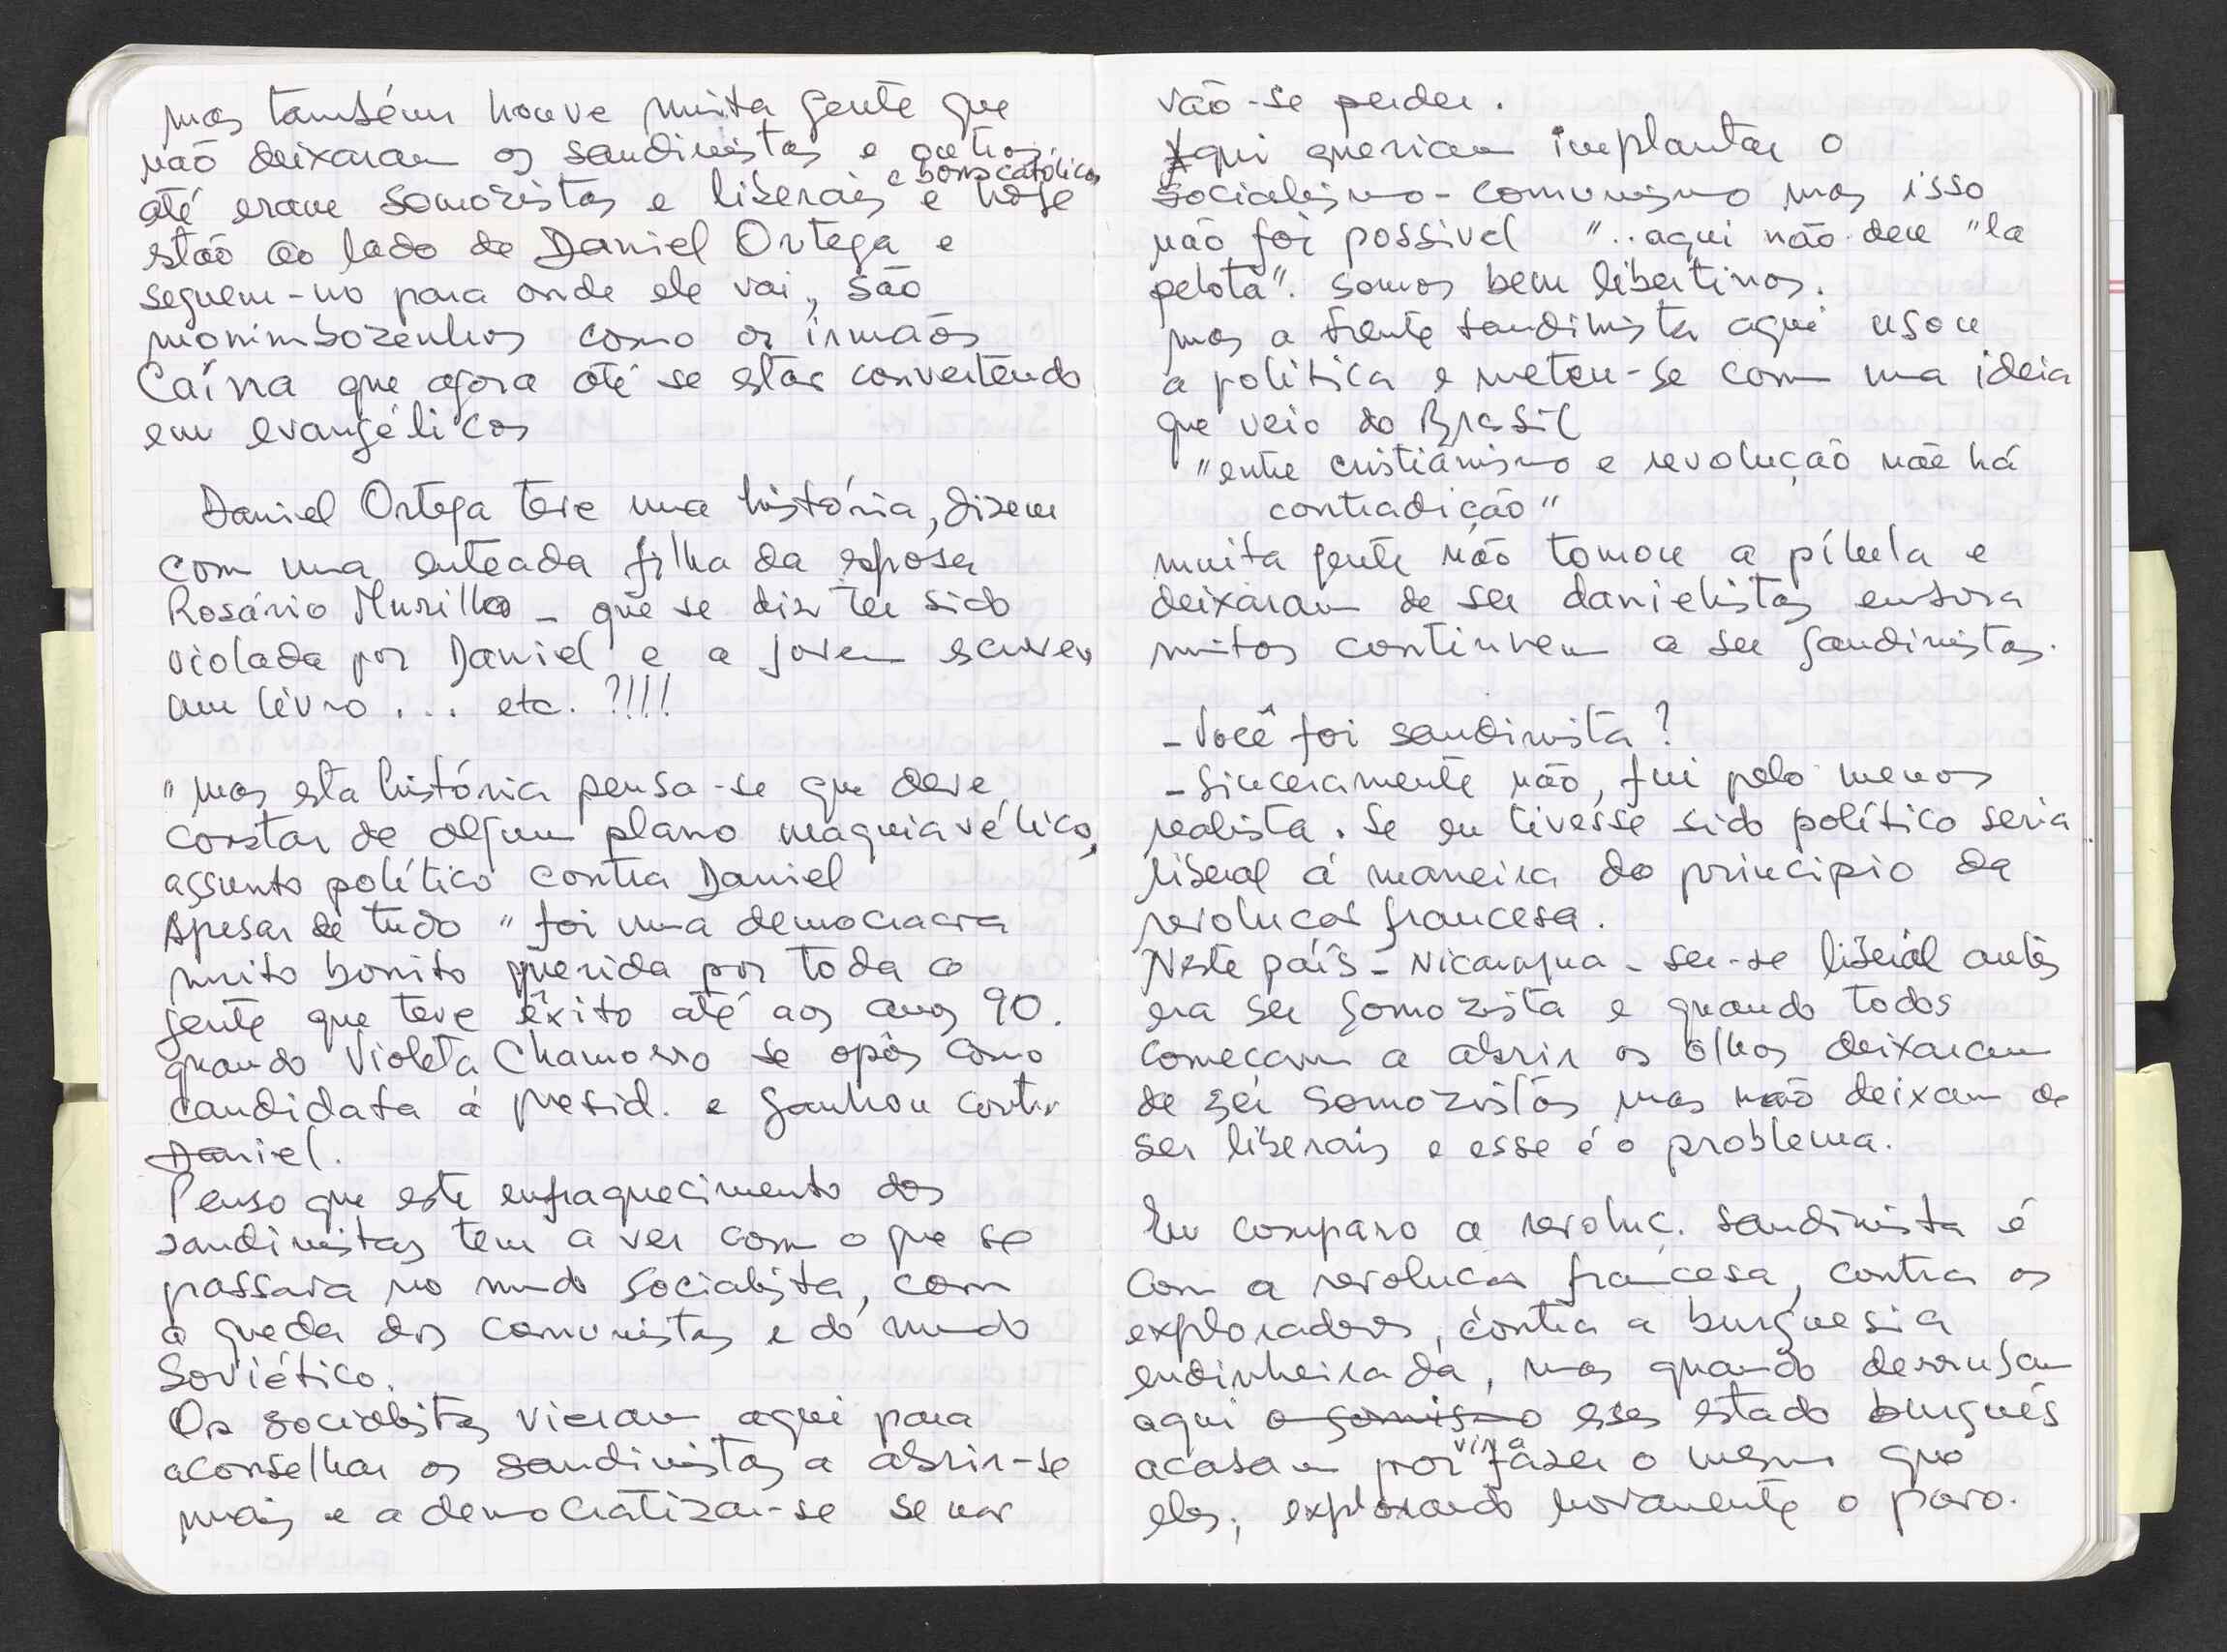 mas também houve muita gente que
não deixaram os sandinistas e outros
até eram somozistas e liberais e bons católicos e hoje
estão ao lado de Daniel Ortega e
seguem-no para onde ele vai, são
monimbozenhos como os irmãos
Caína que agora até se estão convertendo
em evangélicos
Daniel Ortega teve uma história, dizem
com uma enteada filha da esposa
Rosário Murillo - que se diz ter sido
violada por Daniel e a jovem escreveu
um livro ... etc. ?!!!!
"mas esta história pensa-se que deve
constar de algum plano maquiavélico,
assunto político contra Daniel
Apesar de tudo "foi uma democracia
muito bonito querida por toda a
gente que teve êxito até aos anos 90.
quando Violeta Chamorro se opôs como
candidata á presid. e ganhou contra
Daniel.
Penso que este enfraquecimento dos
sandinistas tem a ver com o que se
passava no mundo socialista, com
a queda dos comunistas e do mundo
Soviético.
Os socialistas vieram aqui para
aconselhar os sandinistas a abrir-se
mais e a democratizar-se se não
vão-se perder.
Aqui queriam implantar o
socialismo-comunismo mas isso
não foi possivel "..aqui não deu "la
pelota". somos bem libertinos.
mas a frente sandinista aqui usou
a politica e meteu-se com uma ideia
que veio do Brasil
"entre cristianismo e revolução não há
contradição"
muita gente não tomou a pílula e
deixaram de ser danielistas embora
muitos continuem a ser sandinistas.
- Você foi sandinista?
- Sinceramente não, fui pelo menos
realista. Se eu tivesse sido político seria
liberal á maneira do principio da
revolução francesa.
Neste país - Nicaragua - ser-se liberal antes
era ser somozista e quando todos
começam a abrir os olhos deixaram
de ser somozistas mas não deixam de
ser liberais e esse é o problema.
Eu comparo a revoluç. sandinista é
com a revolução francesa, contra os
exploradores, contra a burguesia
endinheirada, mas quando derrubam
aqui esse estado burguês
acabam por vir a fazer o mesmo que
eles, explorando novamente o povo.